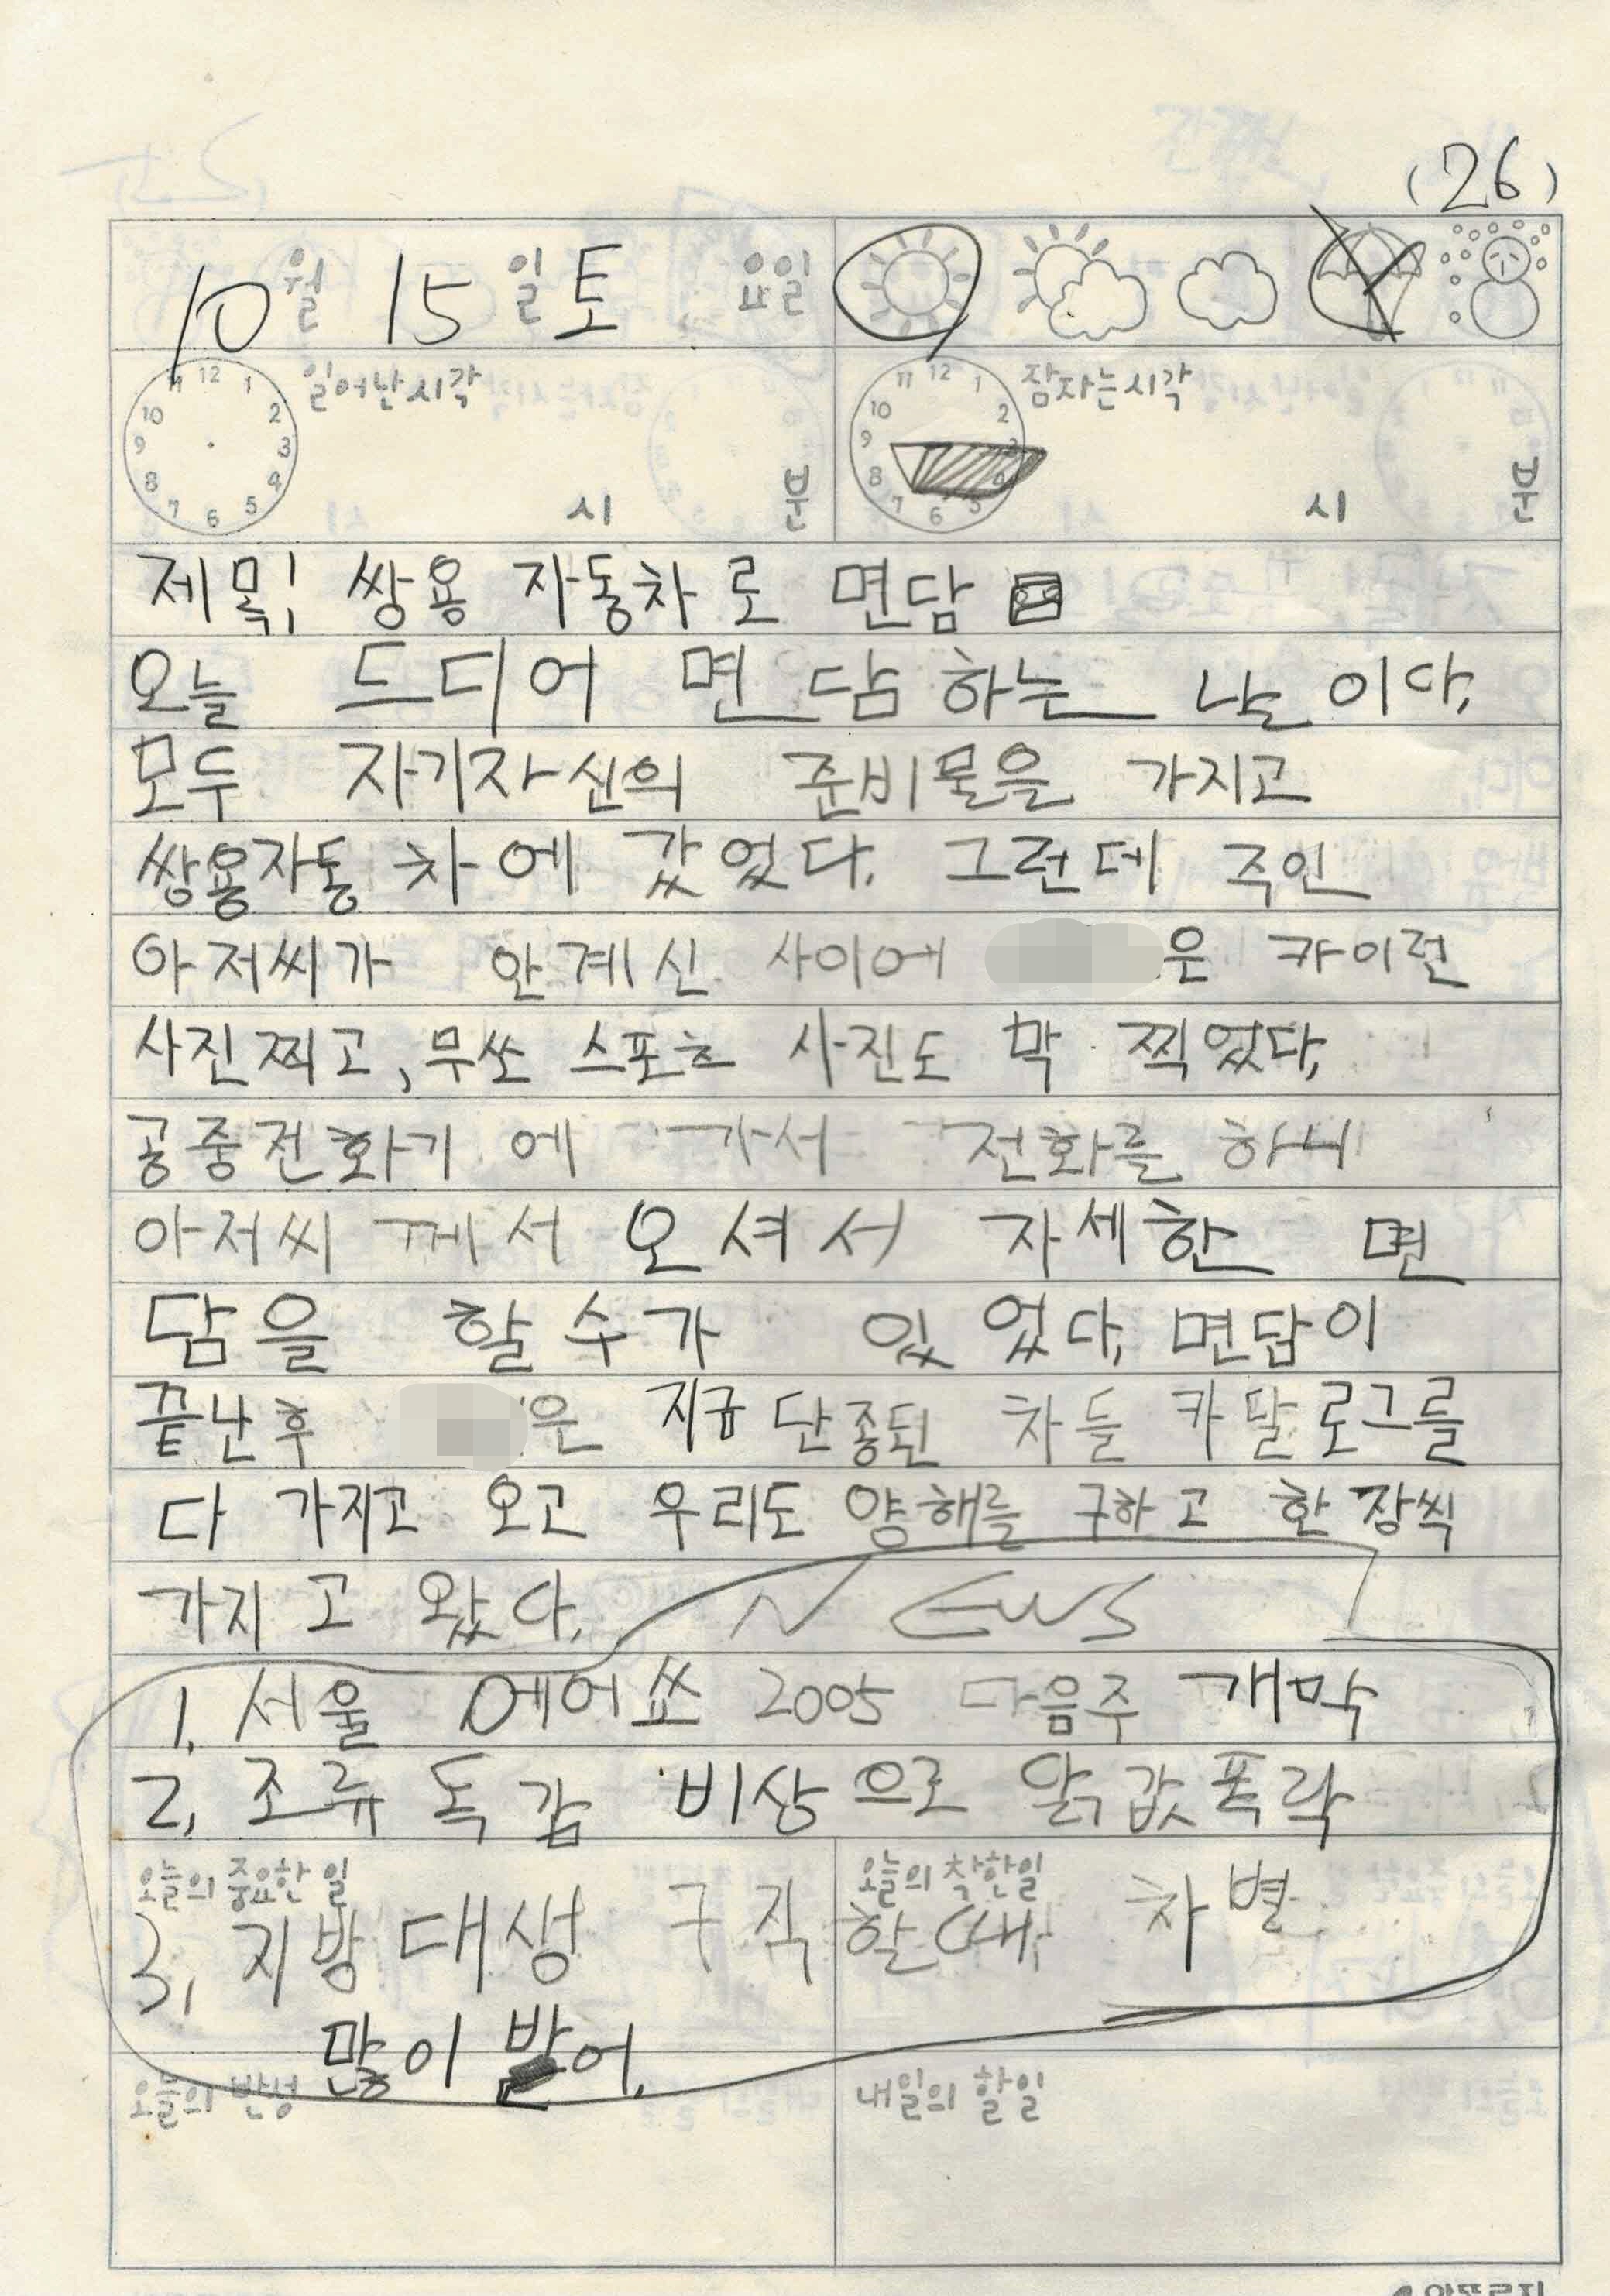 (26)
10월 15일 토 요일
11 12 1 2 3 4 5 6 7 8 9 10 일어난시각 시 분
11 12 1 2 3 4 5 6 7 8 9 10 잠자는시각 시 분
제목: 쌍용 자동차로 면담
오늘 드디어 면담하는 날이다.
모두 자기자신의 준비물을 가지고
쌍용자동차에 갔었다. 그런데 주인
아저씨가 안계신 사이에 은 카이런
사진찍고, 무쏘 스포츠 사진도 막 찍었다.
공중전화기에 가서 전화를 하니
아저씨께서 오셔서 자세한 면
담을 할수가 있었다. 면담이
끝난후 은 지금 단종된 차들 카달로그를
다 가지고 오고 우리도 양해를 구하고 한장씩
가지고 왔다. NEWS
1. 서울 에어쑈 2005 다음주 개막
2. 조류독감 비상으로 닭값폭락
오늘의 중요한 일 오늘의 착한일
3. 지방대생 구직할때, 차별
많이 받어.
오늘의 반성 내일의 할일